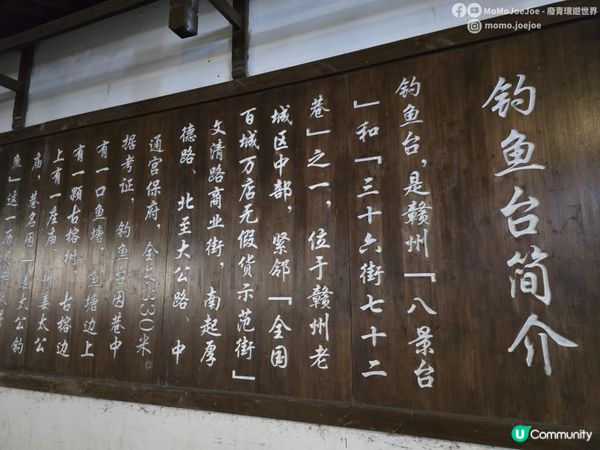 MoMoJoeJoe - 廢青環遊世界
momo.joejoe
钓鱼台简介
钓鱼台，是赣州「八景台
」和「三十六街七十二
巷」之一，位于赣州老
城区中部，紧邻「全国
百城万店无假货示范街」
文清路商业街，南起厚
德路、北至大公路、中
通官保府，全长330米。
据考证，钓鱼台因巷中
有一口鱼塘，鱼塘边上
有一颗古榕树，古榕边
上有一座庙，叫姜太公
庙，巷名因「姜太公钓
鱼」这一历
U Community